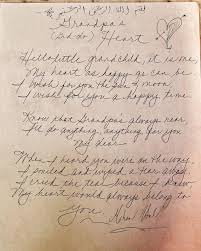 Grandpa's
(Sado) Heart
Hello little grandchild, it is me
My heart as happy as can be
I wish for you the sun & moon
I wish for you a happy time
Know that Grandpa's always near
I'll do anything, anything for you
My dear
When I heard you were on the way
I smiled and wiped a tear away
I cried the tear because I knew
My heart would always belong to
you